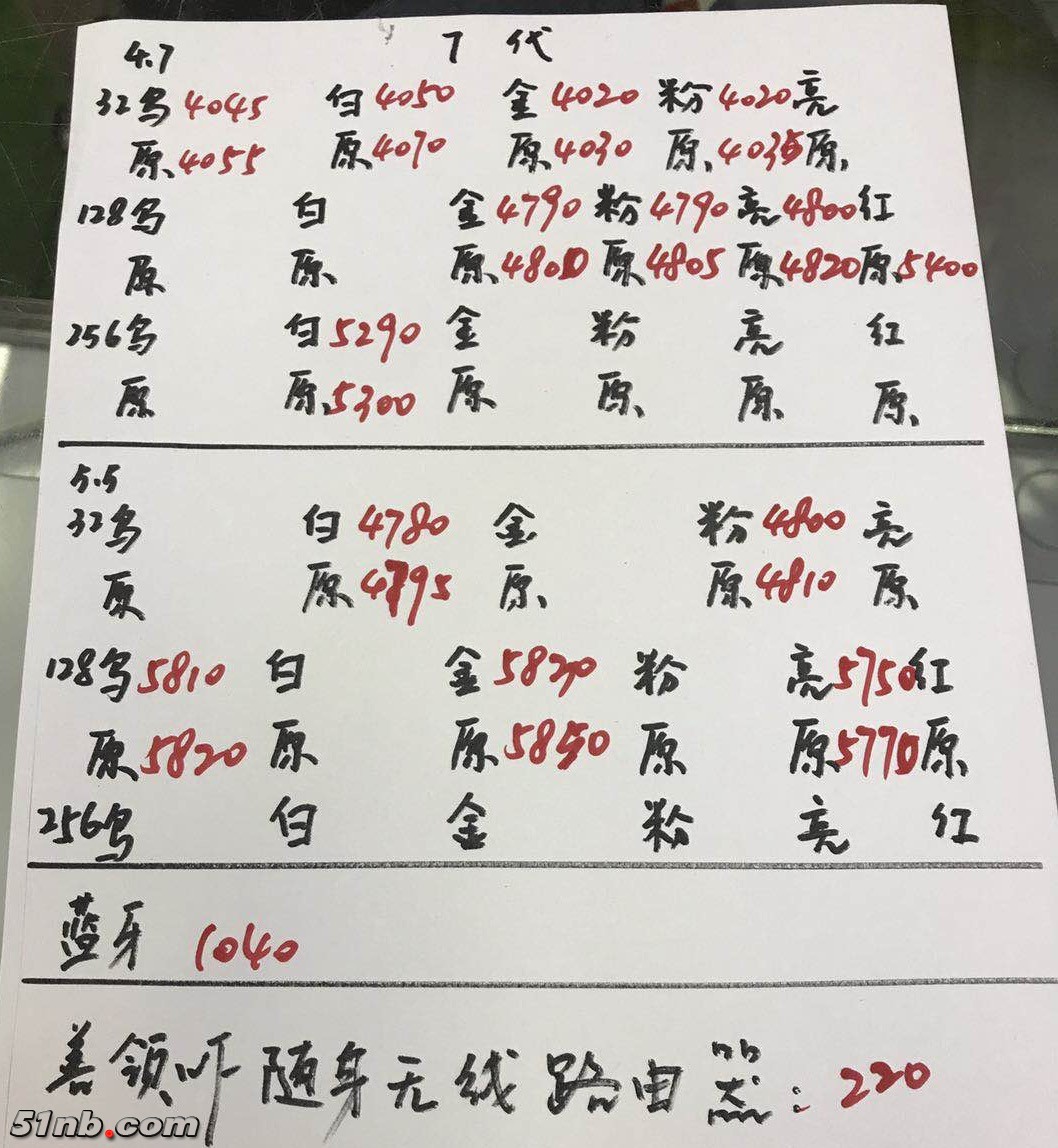 4.7 7 代
32乌 4045 白 4050 金 4020 粉 4020 亮
原 4055 原 4070 原 4030 原 4035 原
128乌 白 金 4790 粉 4790 亮 4800 红
原 原 原 4800 原 4805 原 4820 原 5400
256乌 白 5290 金 粉 亮 红
原 原 5300 原 原 原 原
5.5
32乌 白 4780 金 粉 4800 亮
原 原 4795 原 原 4810 原
128乌 5810 白 金 5820 粉 亮 5750 红
原 5820 原 原 5850 原 原 5770 原
256乌 白 金 粉 亮 红
蓝牙 1040
善领吓随身无线路由器: 220
51nb.com